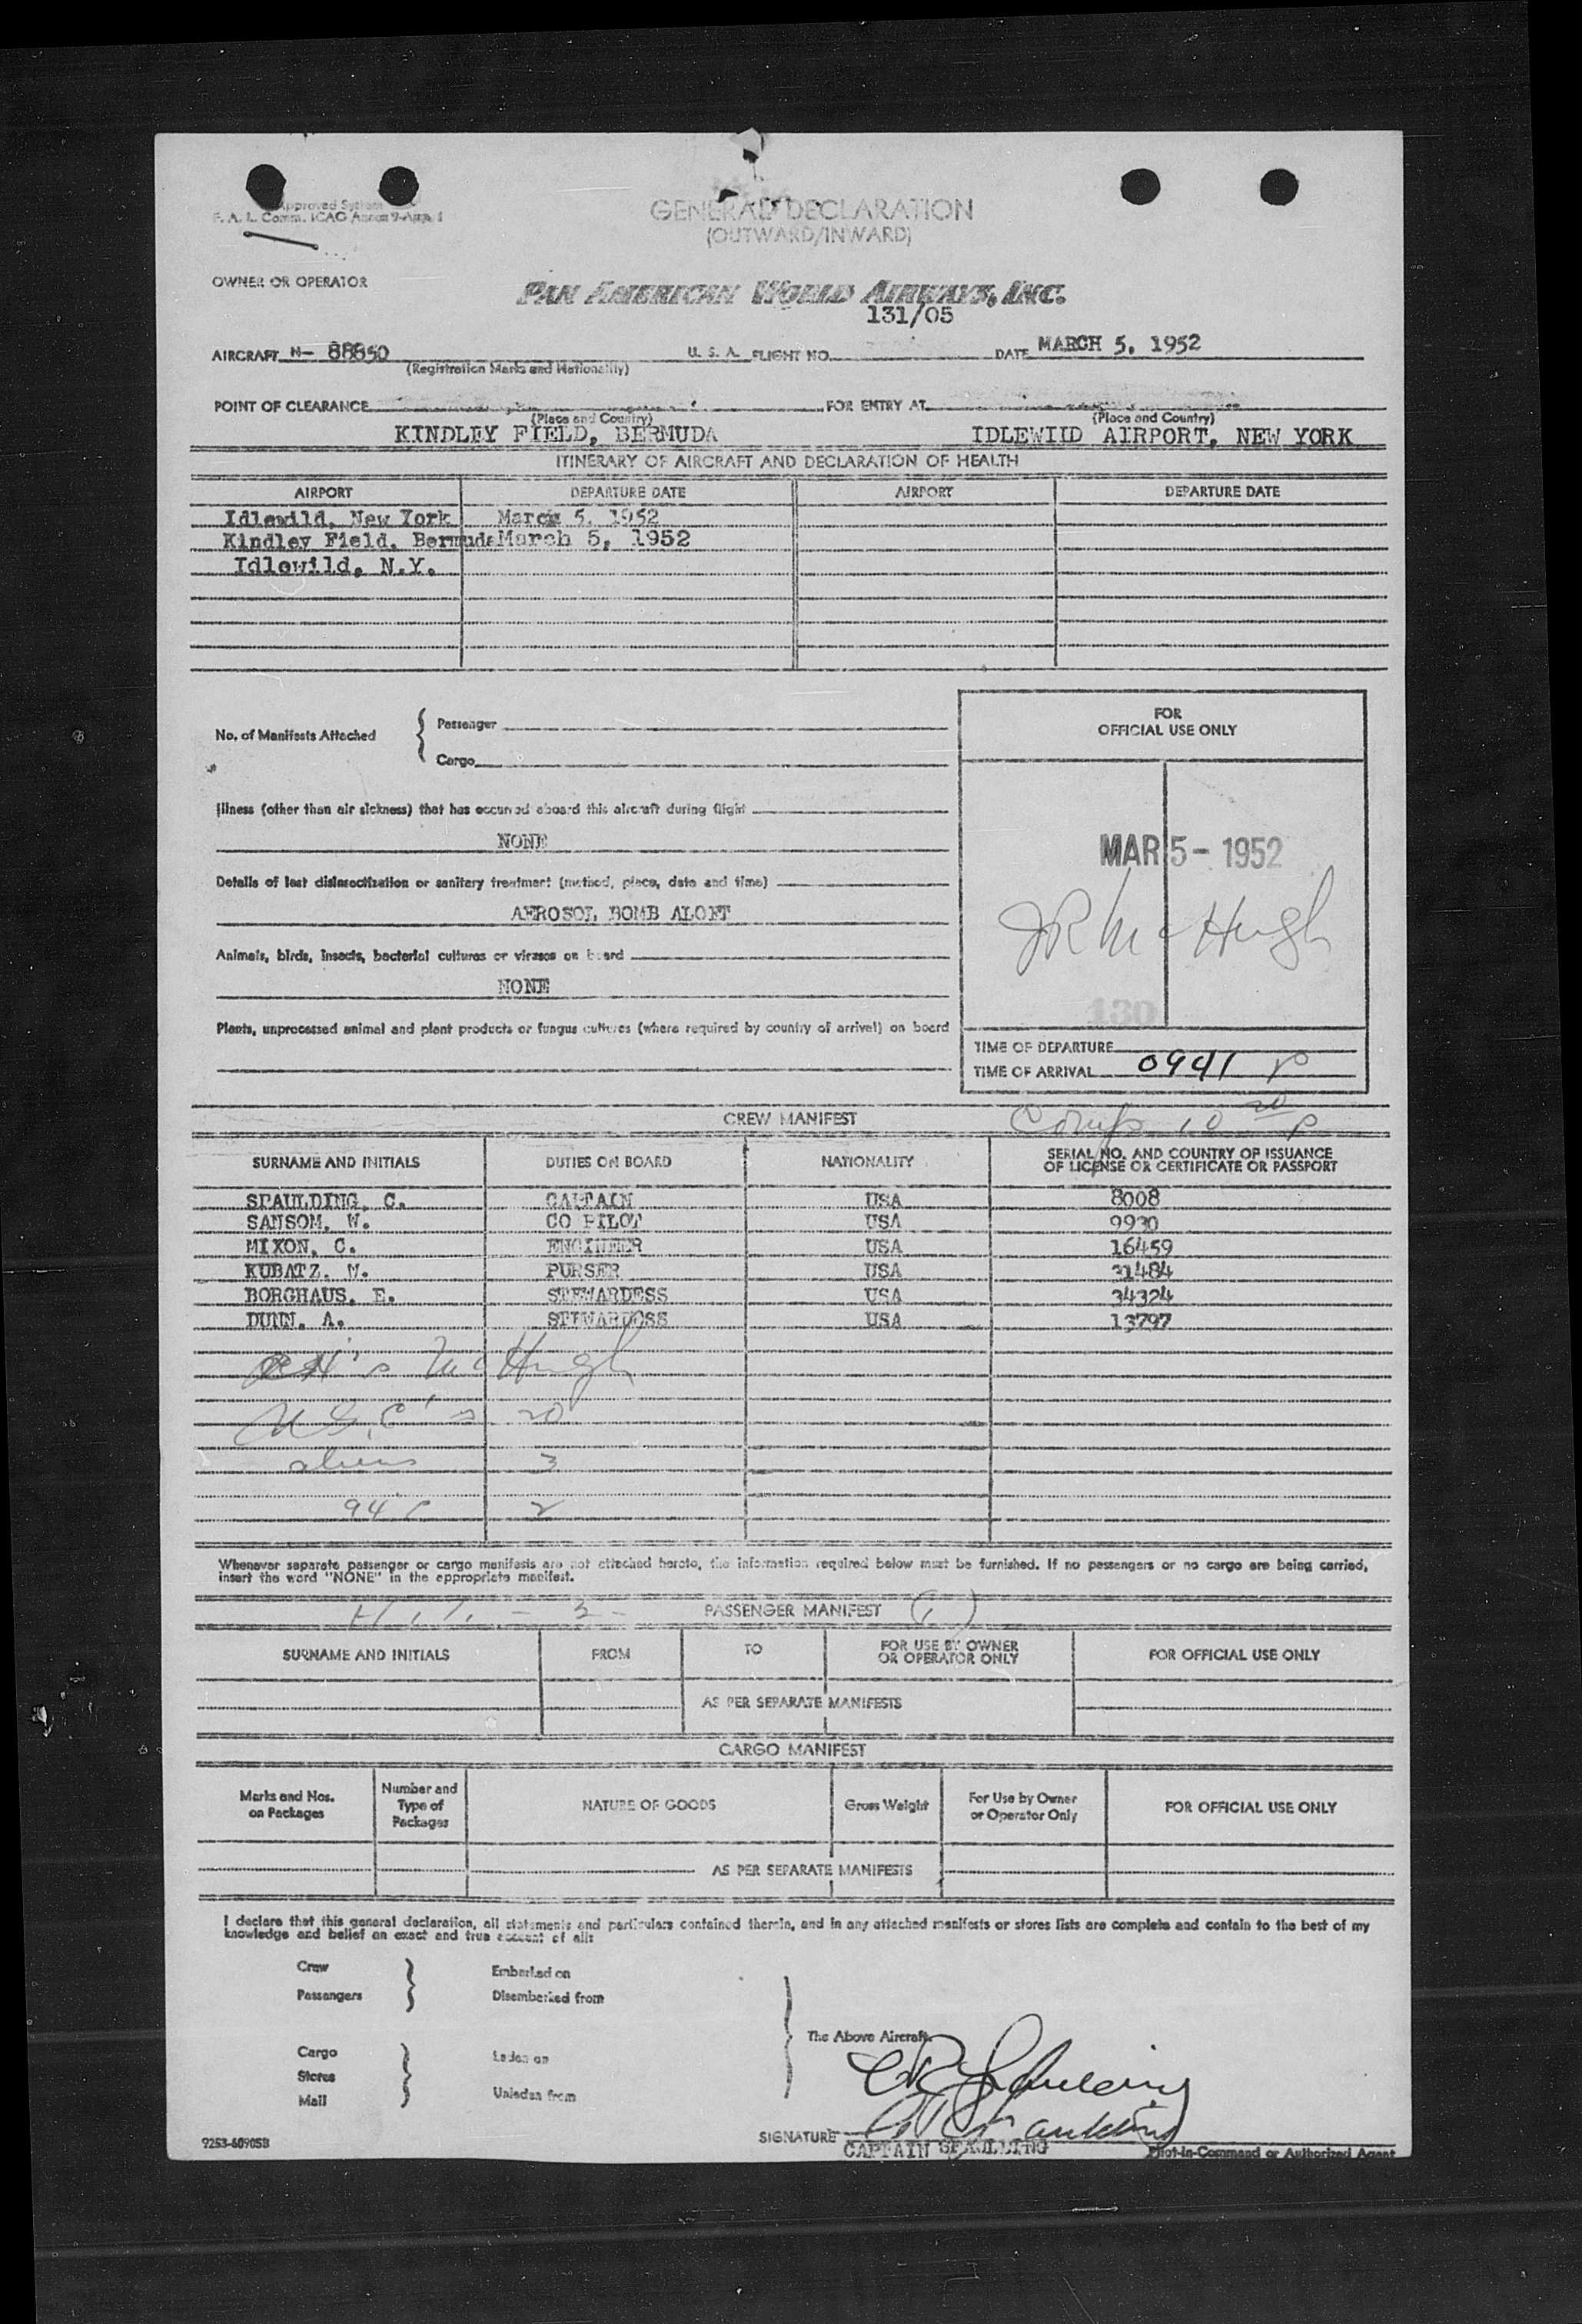 Approved System
F. A. L. Comm. ICAO Annex 9-App. 1
GENERAL DECLARATION
(OUTWARD/INWARD)
OWNER OR OPERATOR
PAN AMERICAN WORLD AIRWAYS, INC.
131/05
AIRCRAFT N- 88850 U. S. A. FLIGHT NO. DATE MARCH 5, 1952
(Registration Marks and Nationality)
POINT OF CLEARANCE FOR ENTRY AT
(Place and Country) (Place and Country)
KINDLEY FIELD, BERMUDA IDLEWIID AIRPORT, NEW YORK
ITINERARY OF AIRCRAFT AND DECLARATION OF HEALTH
AIRPORT DEPARTURE DATE AIRPORT DEPARTURE DATE
Idlewild, New York March 5, 1952
Kindley Field, Bermuda March 5, 1952
Idlewild, N.Y.
No. of Manifests Attached { Passenger
Cargo
FOR
OFFICIAL USE ONLY
Illness (other than air sickness) that has occurred aboard this aircraft during flight
NONE
MAR 5 - 1952
Details of last disinsectization or sanitary treatment (method, place, date and time)
AEROSOL BOMB ALOFT
JR McHugh
Animals, birds, insects, bacterial cultures or viruses on board
NONE
130
Plants, unprocessed animal and plant products or fungus cultures (where required by country of arrival) on board
TIME OF DEPARTURE
TIME OF ARRIVAL 0941 P
CREW MANIFEST Comp 10 20 P
SURNAME AND INITIALS DUTIES ON BOARD NATIONALITY SERIAL NO. AND COUNTRY OF ISSUANCE
OF LICENSE OR CERTIFICATE OR PASSPORT
SPAULDING, C. CAPTAIN USA 8008
SANSOM, W. CO PILOT USA 9930
MIXON, C. ENGINEER USA 16459
KUBATZ, W. PURSER USA 31484
BORGHAUS, E. STEWARDESS USA 34324
DUNN, A. STEWARDESS USA 13797
McHugh
U.S.C's 20
aliens 3
2
Whenever separate passenger or cargo manifests are not attached hereto, the information required below must be furnished. If no passengers or no cargo are being carried,
insert the word "NONE" in the appropriate manifest.
PASSENGER MANIFEST
SURNAME AND INITIALS FROM TO FOR USE BY OWNER
OR OPERATOR ONLY FOR OFFICIAL USE ONLY
AS PER SEPARATE MANIFESTS
CARGO MANIFEST
Marks and Nos.
on Packages Number and
Type of
Packages NATURE OF GOODS Gross Weight For Use by Owner
or Operator Only FOR OFFICIAL USE ONLY
AS PER SEPARATE MANIFESTS
I declare that this general declaration, all statements and particulars contained therein, and in any attached manifests or stores lists are complete and contain to the best of my
knowledge and belief an exact and true account of all:
Crew Embarked on
Passengers Disembarked from
The Above Aircraft
Cargo Laden on
Stores
Mail Unladen from
SIGNATURE
CAPTAIN SPAULDING Pilot-in-Command or Authorized Agent
9253-60905B